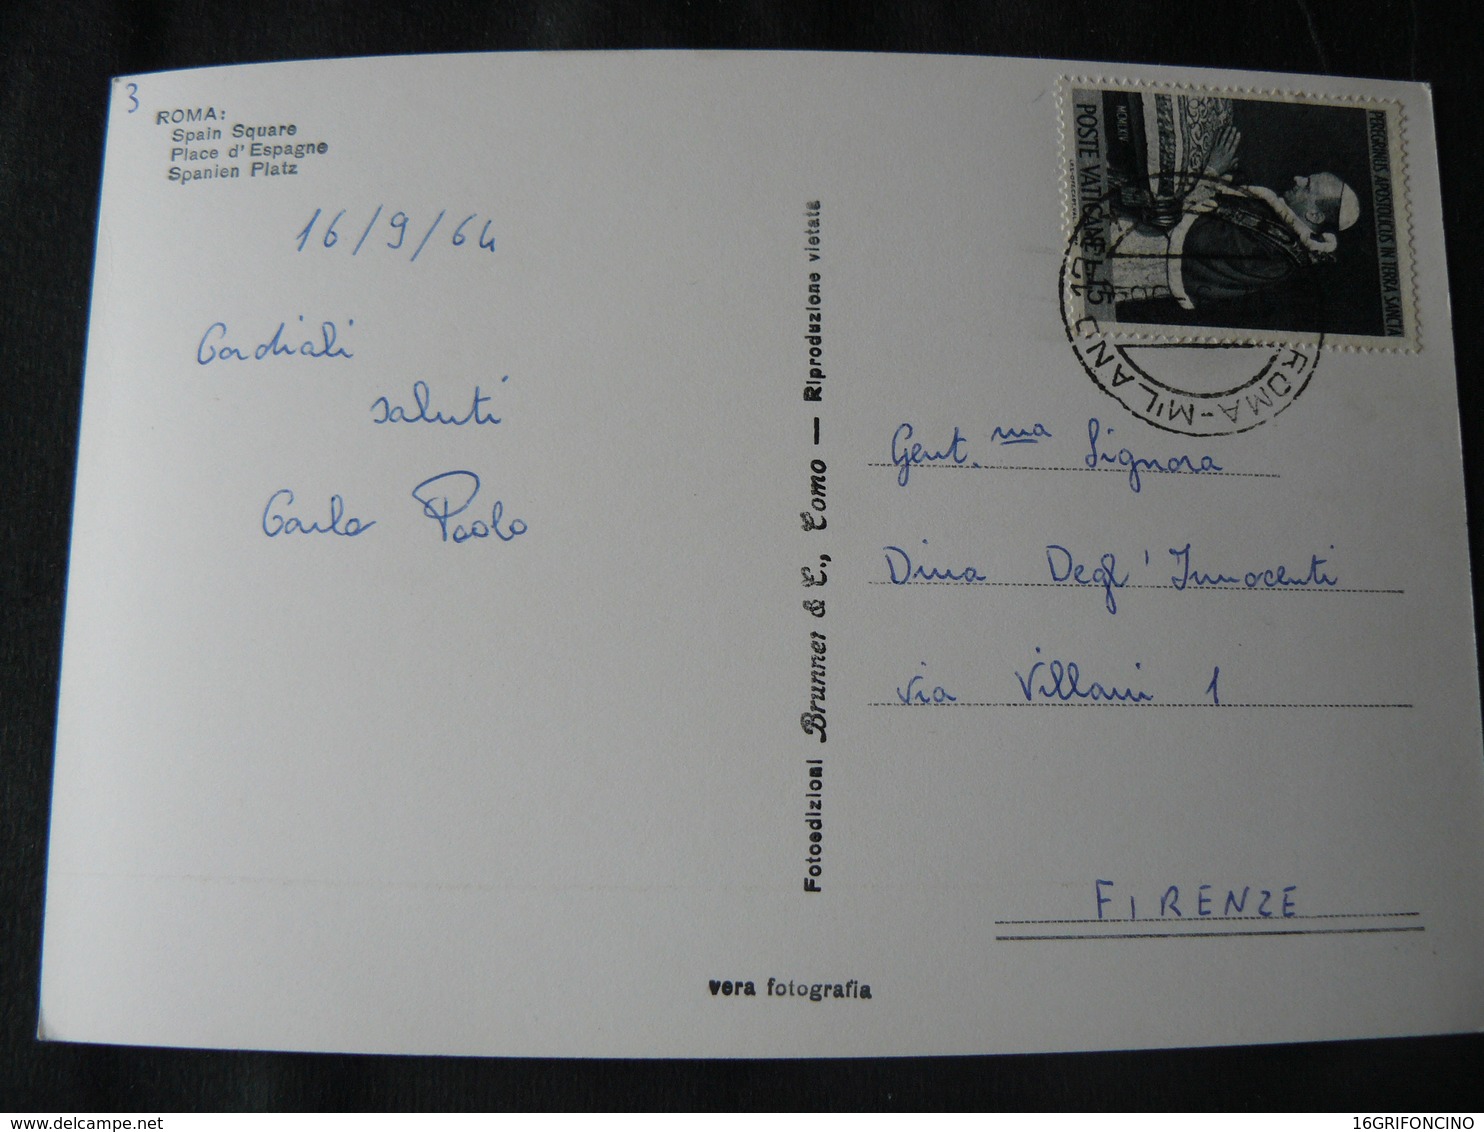 3
ROMA:
Spain Square
Place d'Espagne
Spanien Platz
16/9/64
Cordiali
saluti
Carlo Paolo
Fotoedizioni Brunner & C., Como — Riproduzione vietata
vera fotografia
POSTE VATICANE L.15
MCMLXIV
PEREGRINUS APOSTOLICUS IN TERRA SANCTA
ROMA-MILANO
Gent.ma Signora
Dina Degl'Innocenti
via Villani 1
FIRENZE
16GRIFONCINO